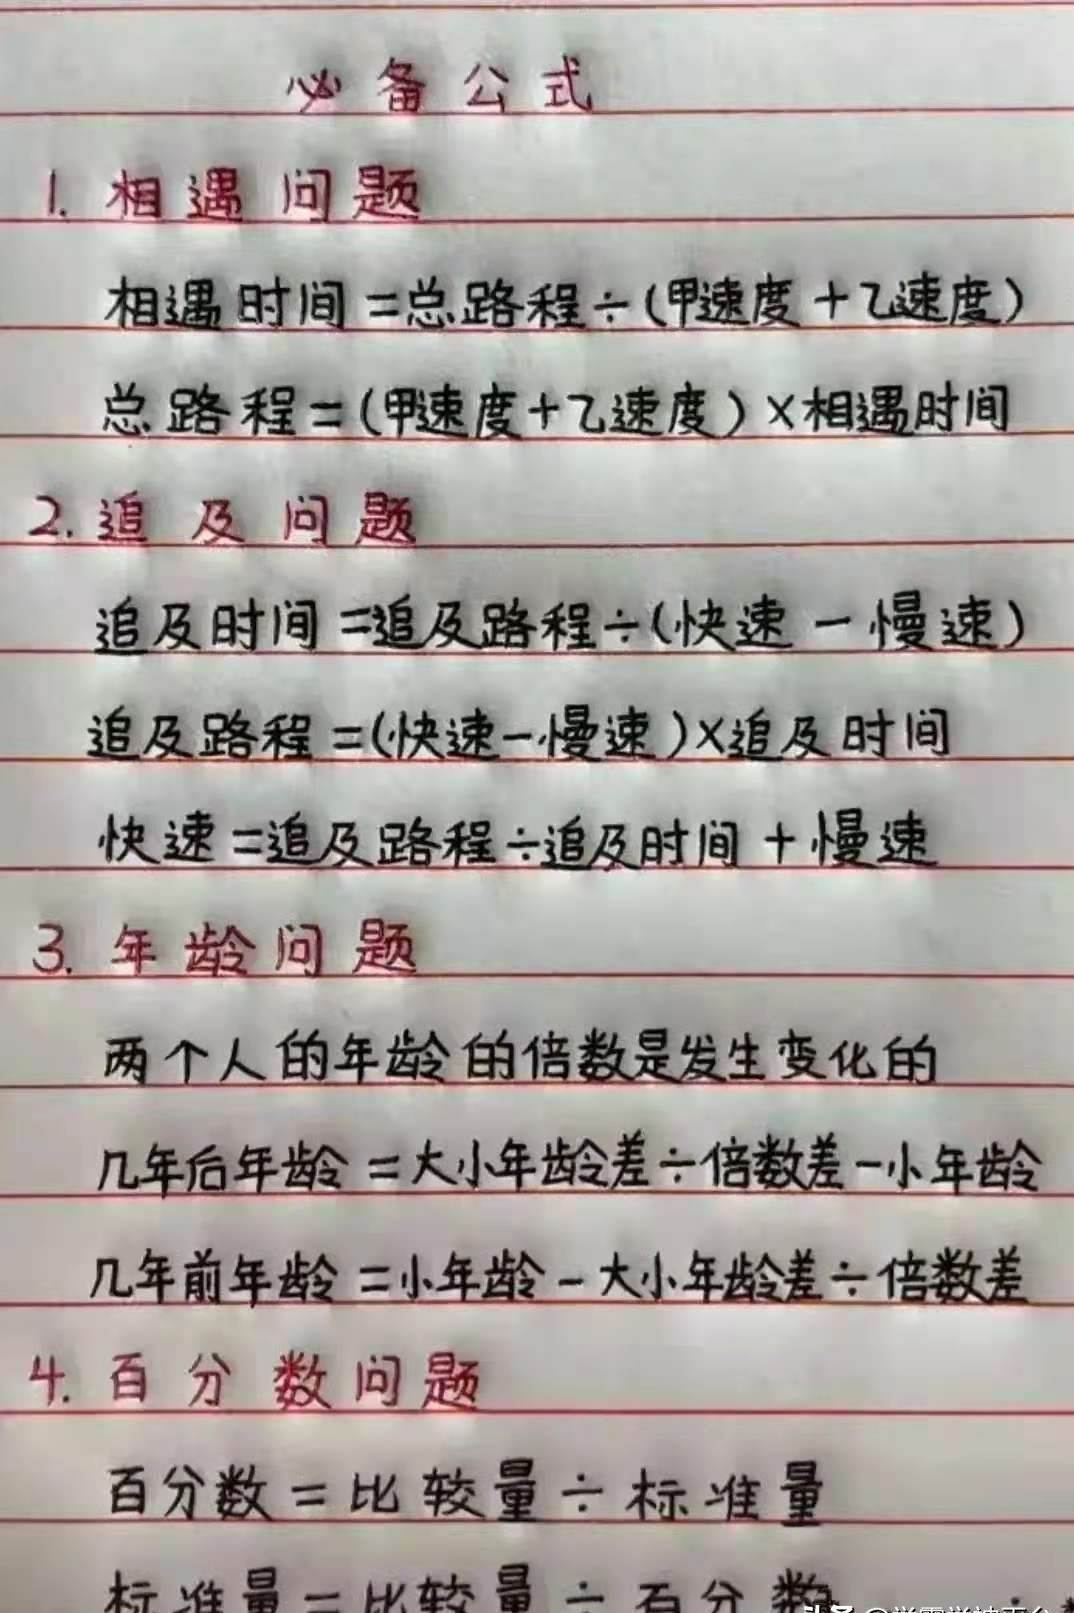 必备公式
1. 相遇问题
相遇时间=总路程÷(甲速度+乙速度)
总路程=(甲速度+乙速度)×相遇时间
2. 追及问题
追及时间=追及路程÷(快速-慢速)
追及路程=(快速-慢速)×追及时间
快速=追及路程÷追及时间+慢速
3. 年龄问题
两个人的年龄的倍数是发生变化的
几年后年龄=大小年龄差÷倍数差-小年龄
几年前年龄=小年龄-大小年龄差÷倍数差
4. 百分数问题
百分数=比较量÷标准量
标准量=比较量÷百分数